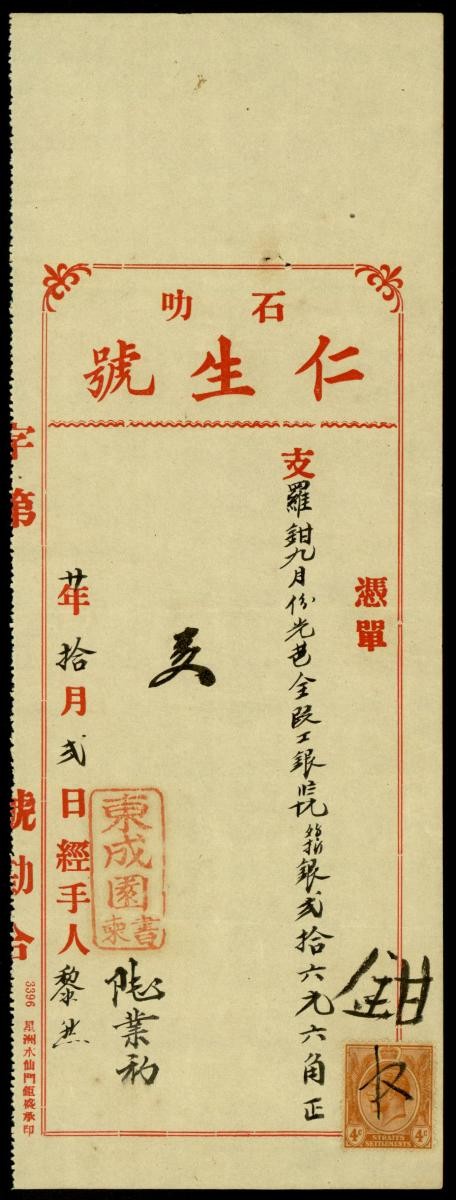 石叻
仁生號
憑單
支羅鉗九月份光芭仝段工銀 銀弍拾六元六角正
鉗
支
東成園
書柬
業初
廿年拾月弍日經手人黎然
字第 號勘合
3396 星洲水仙門鉅盛承印
4c 4c
STRAITS
SETTLEMENTS